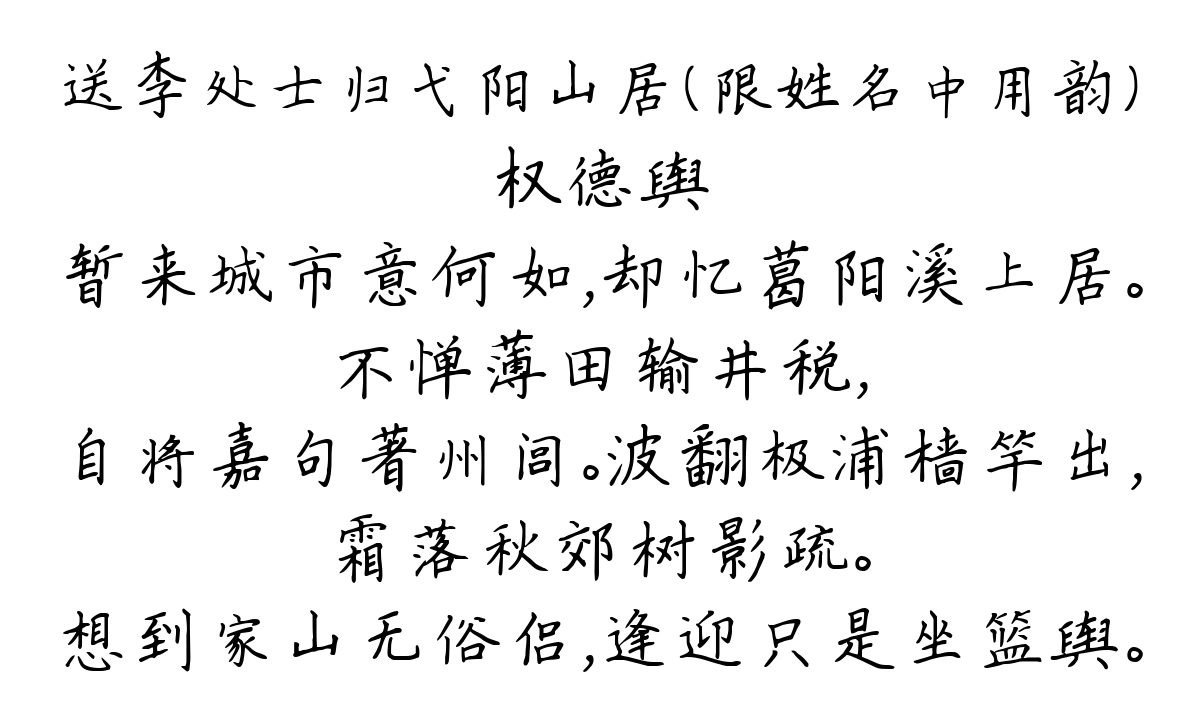 送李处士归弋阳山居(限姓名中用韵)
权德舆
暂来城市意何如,却忆葛阳溪上居。
不惮薄田输井税,
自将嘉句著州闾。波翻极浦樯竿出,
霜落秋郊树影疏。
想到家山无俗侣,逢迎只是坐篮舆。